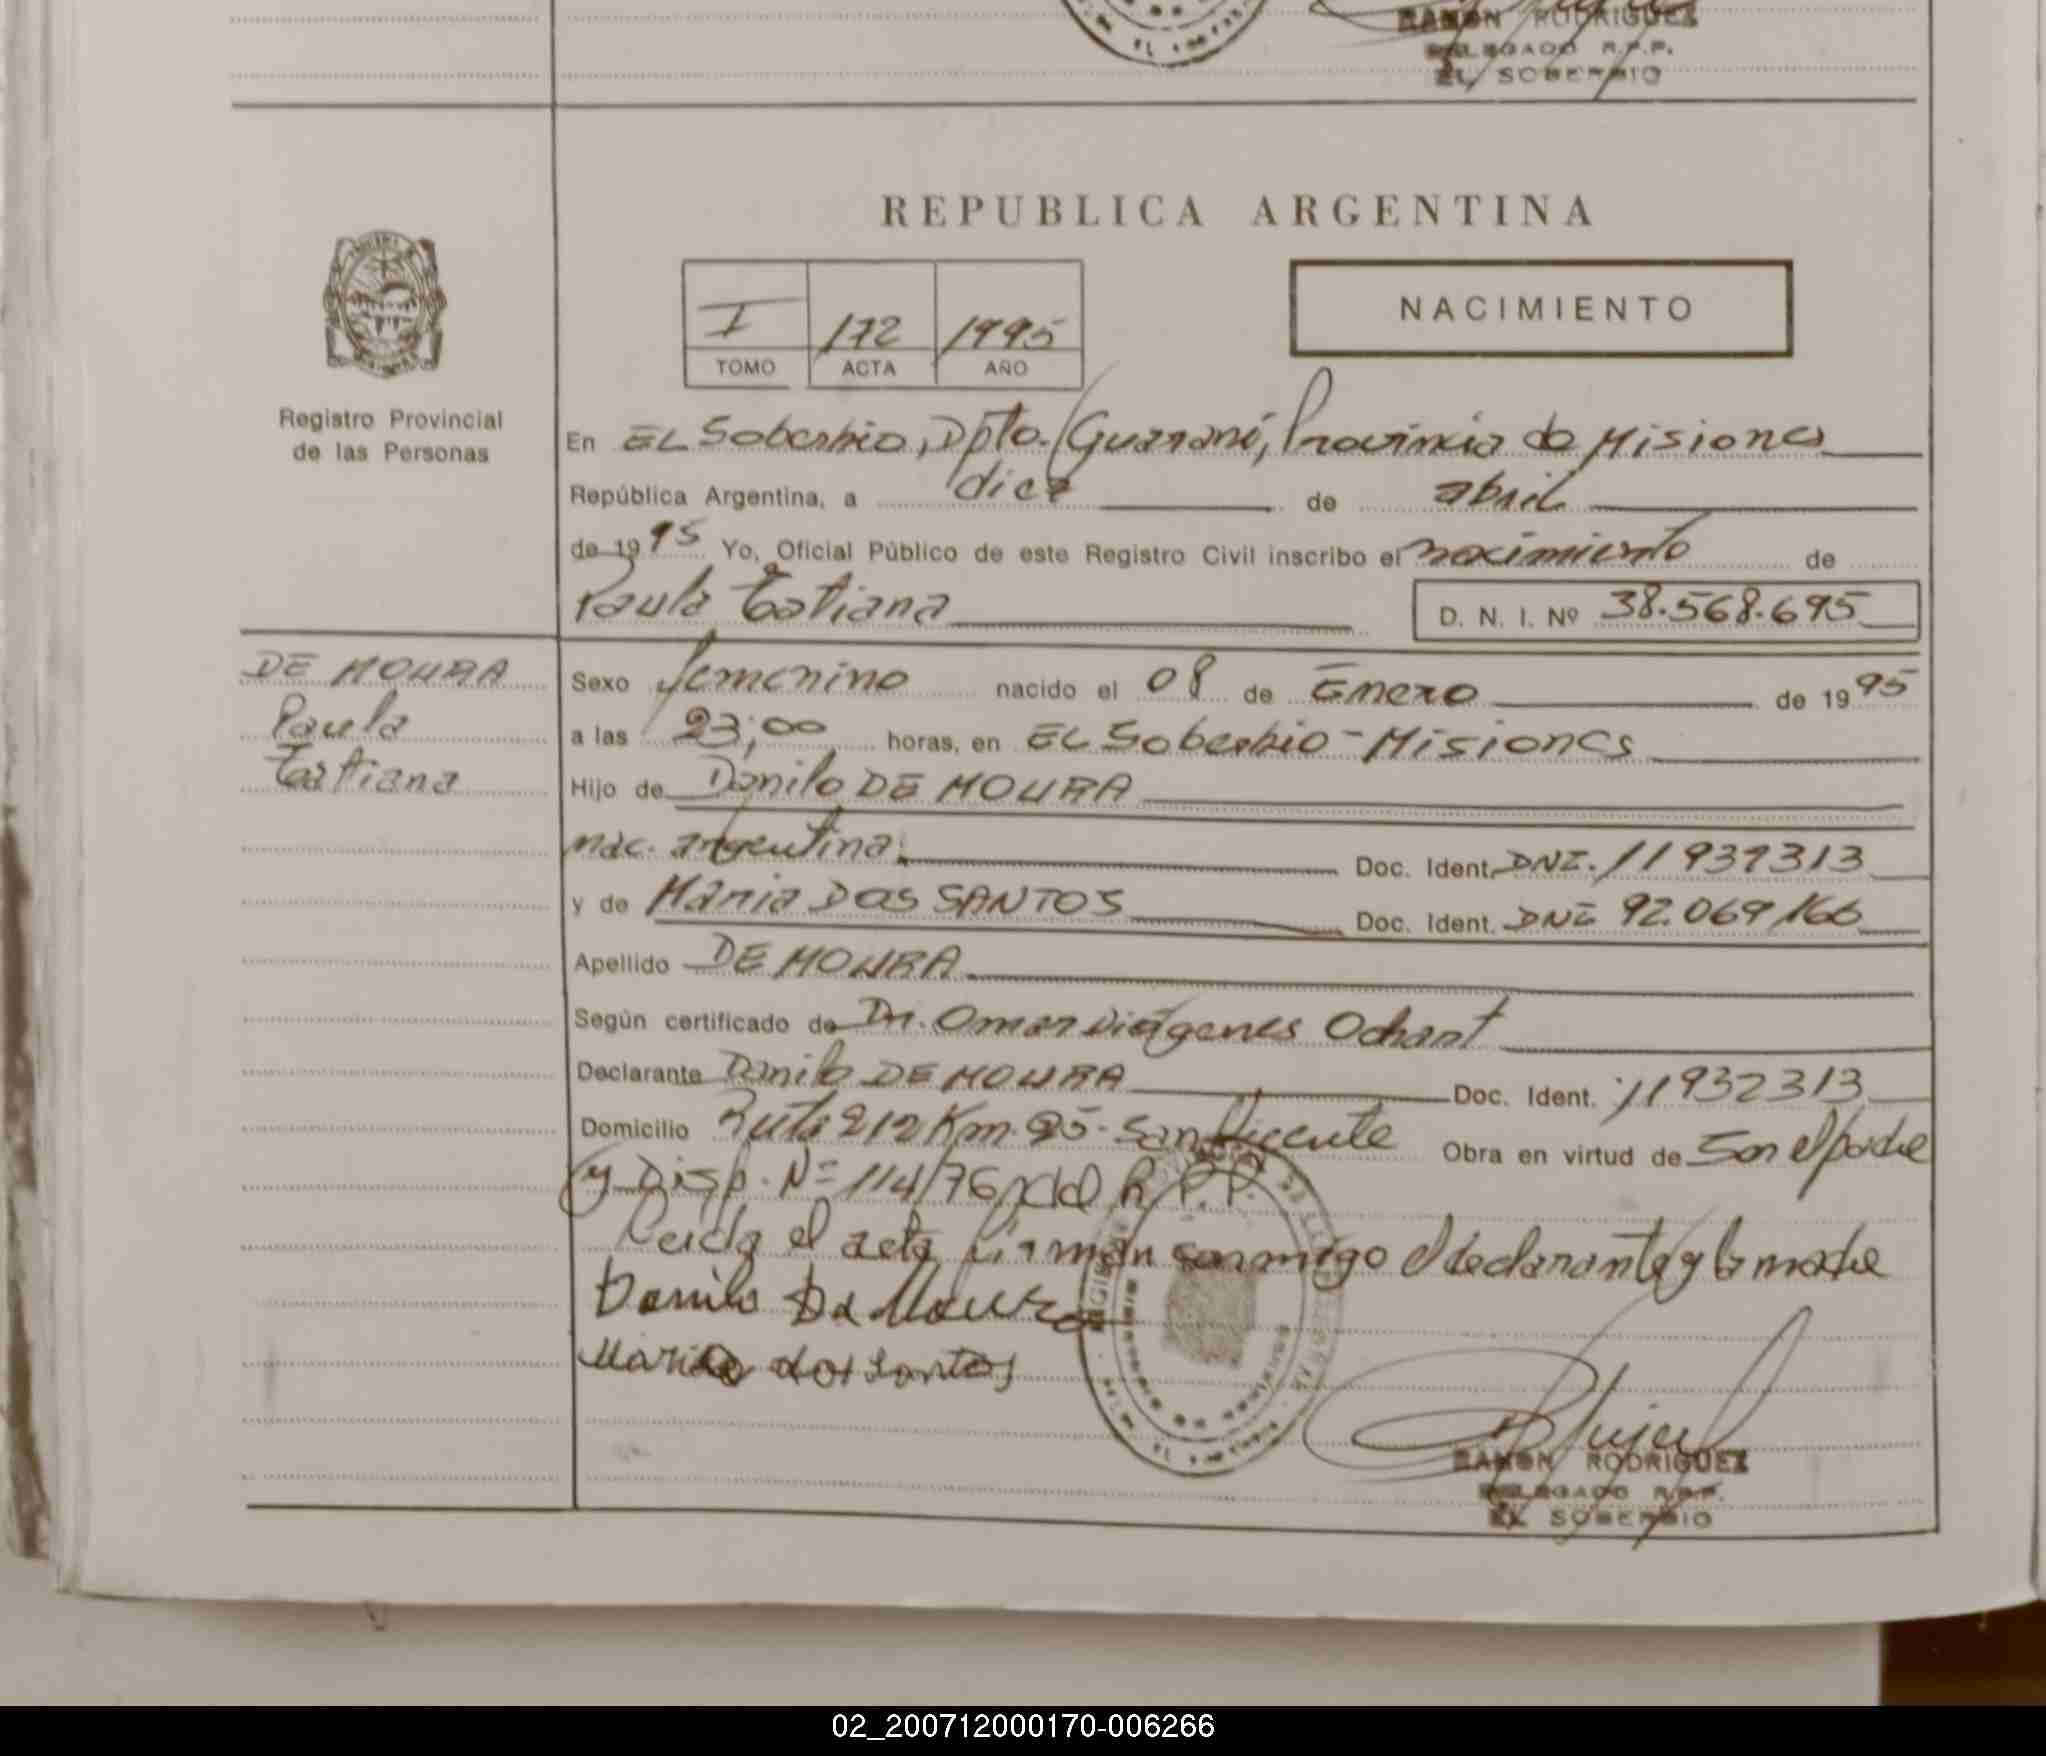 RAMON RODRIGUEZ
DELEGADO R.P.P.
EL SOBERBIO
REPUBLICA ARGENTINA
I 172 1995
TOMO ACTA AÑO
NACIMIENTO
Registro Provincial
de las Personas
En EL Soberbio, Dpto. Guaraní, Provincia de Misiones
República Argentina, a diez de abril
de 1995 Yo, Oficial Público de este Registro Civil inscribo el nacimiento de
Paula Tatiana D. N. I. Nº 38.568.695
DE MOURA
Paula
Tatiana
Sexo femenino nacido el 08 de Enero de 1995
a las 23,00 horas, en EL Soberbio - Misiones
Hijo de Danilo DE MOURA
nac. argentina. Doc. Ident. DNI. 11937313
y de Maria DOS SANTOS Doc. Ident. DNI 92.069.166
Apellido DE MOURA
Según certificado de Dr. Omar Diógenes Ochant
Declarante Danilo DE MOURA Doc. Ident. 11932313
Domicilio Ruta 212 Km. 95 - San Vicente Obra en virtud de Ser el padre
y Disp. Nº 114/76 del R.P.P.
Leida el acta firman conmigo el declarante y la madre
Danilo Da Moura
Maria dos santos
RAMON RODRIGUEZ
DELEGADO R.P.P.
EL SOBERBIO
02_200712000170-006266